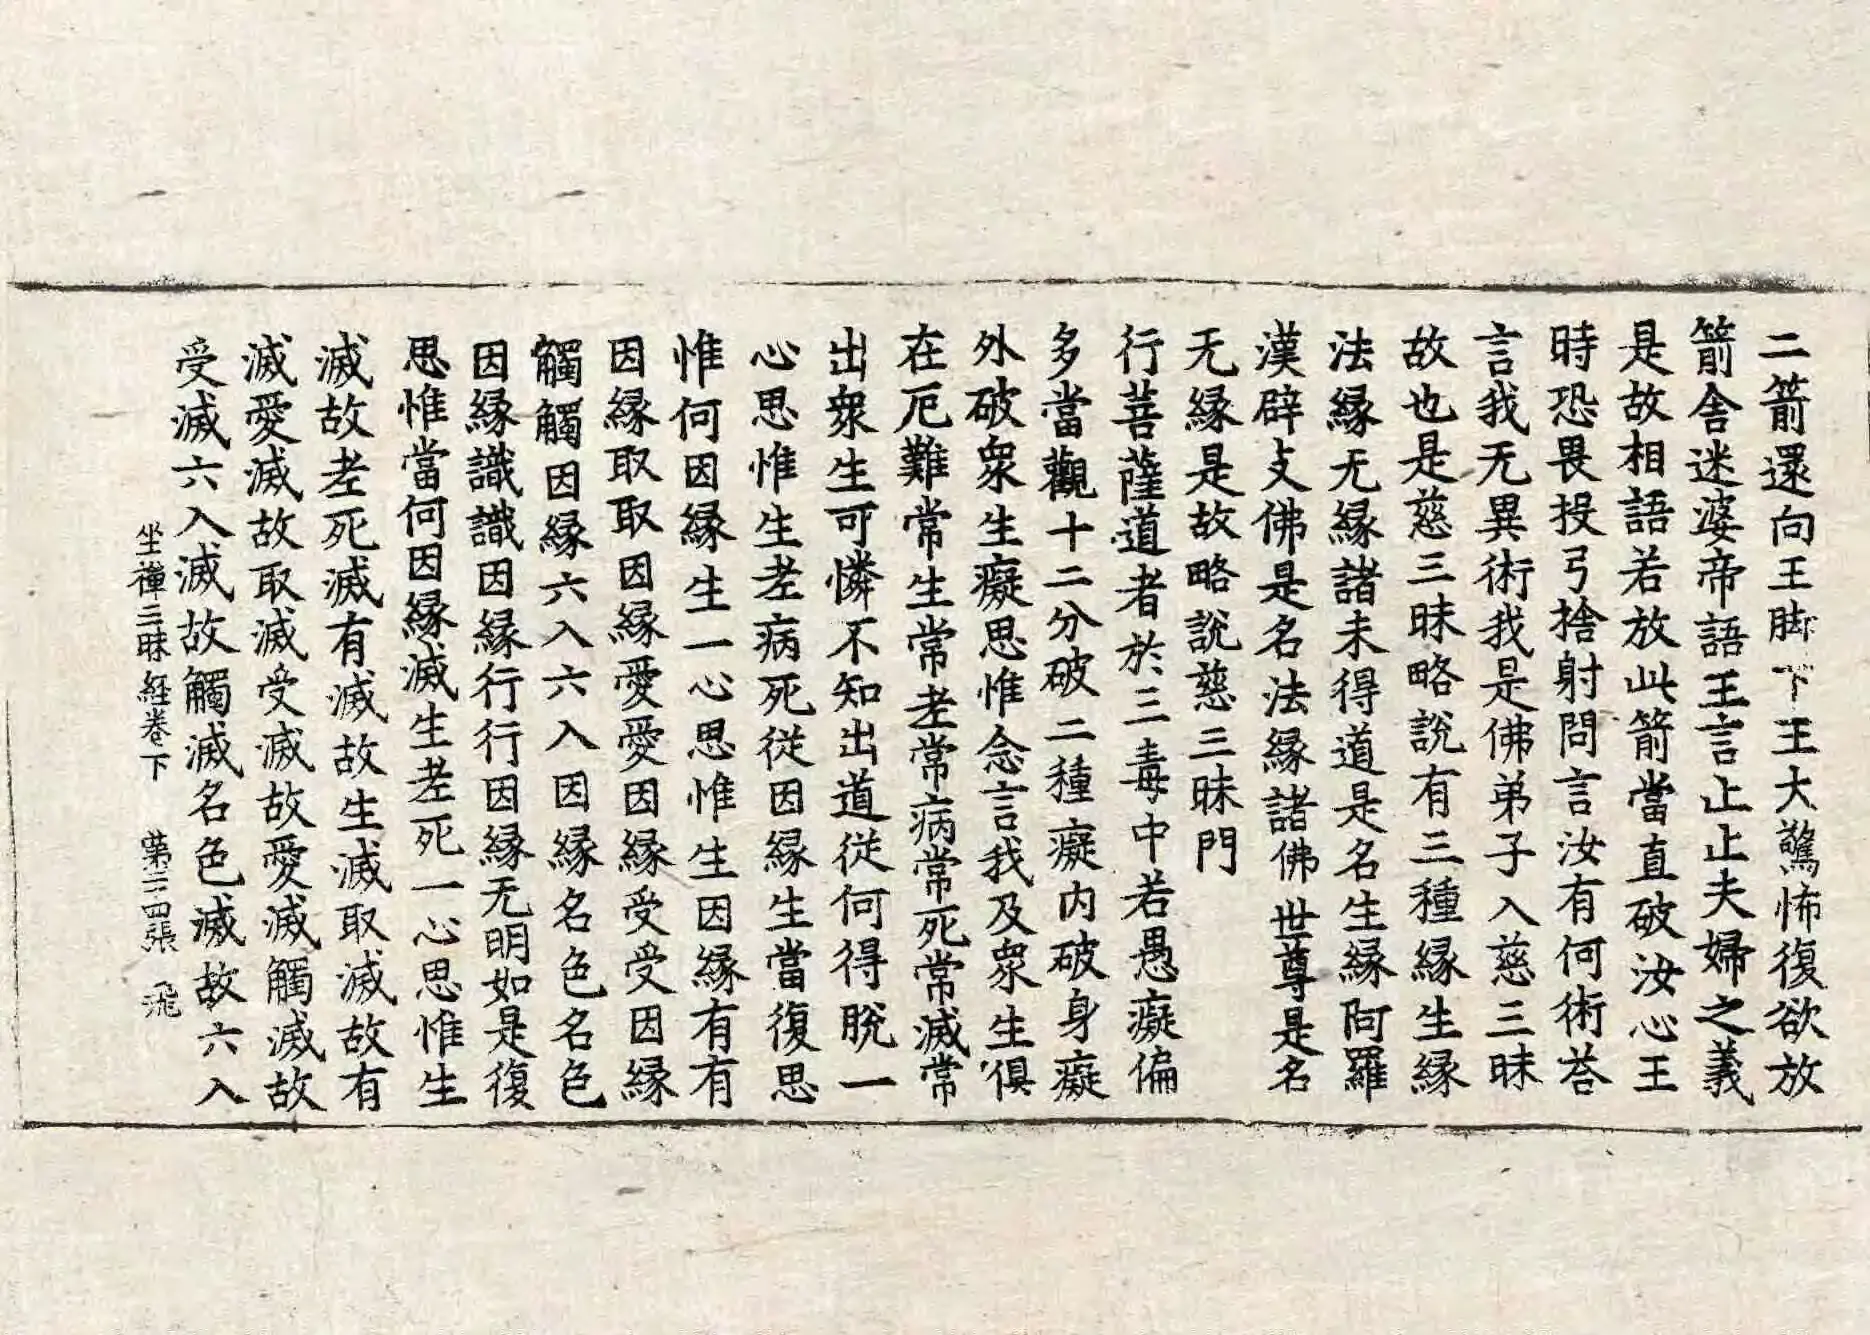 二箭還向王脚下王大驚怖復欲放
箭舍迷婆帝語王言止止夫婦之義
是故相語若放此箭當直破汝心王
時恐畏投弓捨射問言汝有何術荅
言我无異術我是佛弟子入慈三昧
故也是慈三昧略說有三種緣生緣
法緣无緣諸未得道是名生緣阿羅
漢辟支佛是名法緣諸佛世尊是名
无緣是故略說慈三昧門
行菩薩道者於三毒中若愚癡偏
多當觀十二分破二種癡内破身癡
外破衆生癡思惟念言我及衆生俱
在厄難常生常老常病常死常滅常
出衆生可憐不知出道從何得脫一
心思惟生老病死從因緣生當復思
惟何因緣生一心思惟生因緣有有
因緣取取因緣愛愛因緣受受因緣
觸觸因緣六入六入因緣名色名色
因緣識識因緣行行因緣无明如是復
思惟當何因緣滅生老死一心思惟生
滅故老死滅有滅故生滅取滅故有
滅愛滅故取滅受滅故愛滅觸滅故
受滅六入滅故觸滅名色滅故六入
坐禪三昧経卷下 苐三四張 飛